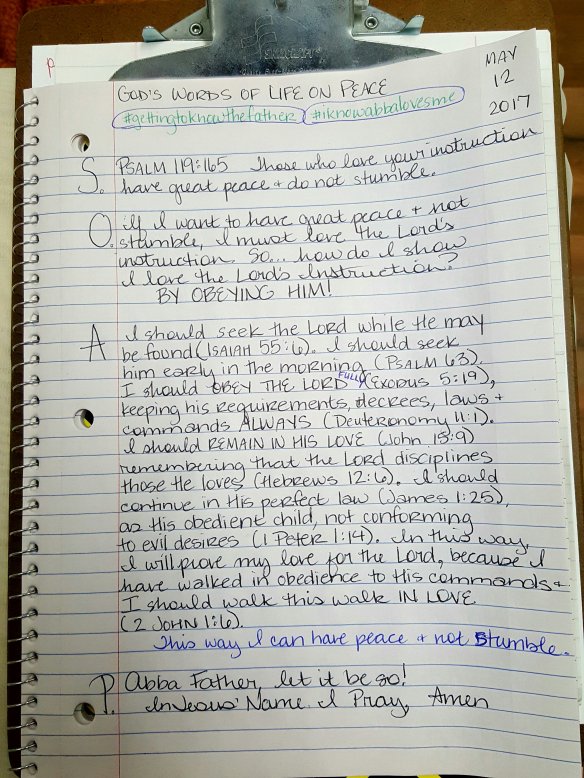 P
GOD'S WORDS OF LIFE ON PEACE
MAY
12
2017
#gettingtoknowthefather #iknowabbalovesme
S. PSALM 119:165 Those who love your instruction
have great peace + do not stumble.
O. if I want to have great peace + not
stumble, I must love the Lord's
instruction. So... how do I show
I love the Lord's Instruction?
BY OBEYING HIM!
A I should seek the LORD while He may
be found (ISAIAH 55:6). I should seek
him early in the morning (PSALM 63).
I should OBEY THE LORD FULLY (EXODUS 5:19),
keeping his requirements, decrees, laws +
commands ALWAYS (Deuteronomy 11:1).
I should REMAIN IN HIS LOVE (John 15:9)
remembering that the Lord disciplines
those He loves (Hebrews 12:6). I should
continue in His perfect law (James 1:25),
as His obedient child, not conforming
to evil desires (1 Peter 1:14). In this way,
I will prove my love for the Lord, because I
have walked in obedience to His commands +
I should walk this walk IN LOVE
(2 JOHN 1:6).
This way I can have peace + not stumble.
P. Abba Father, let it be so!
In Jesus' Name I Pray, Amen